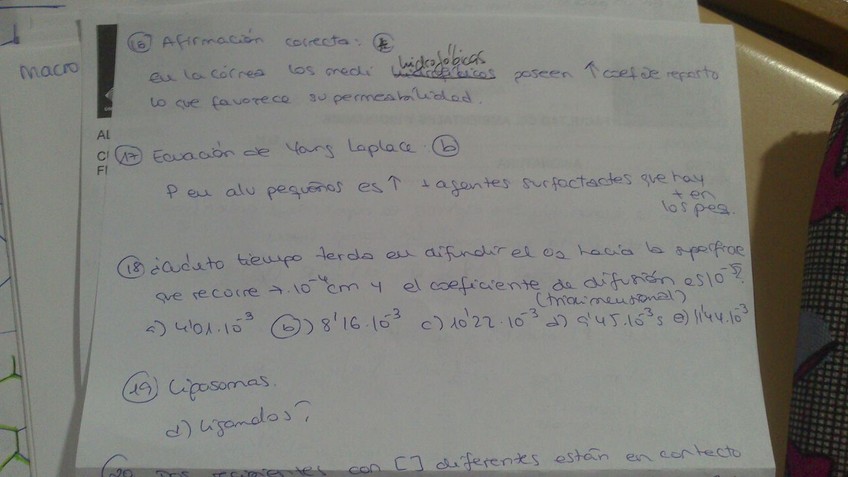 macro
Al
Cl
Fl
16 Afirmación correcta: e
hidrofóbicos
en la córnea los medi poseen ↑ coef de reparto
lo que favorece su permeabilidad.
17 Ecuación de Yang Laplace. b
P en alv pequeños es ↑ + agentes surfactactes que hay
+ en
los peq.
18 ¿Cuánto tiempo tarda en difundir el O2 hacia la superficie
que recorre 7.10⁻⁴cm y el coeficiente de difusión es 10⁻⁵?
(tridimensional)
a) 4'01.10⁻³ b) 8'16.10⁻³ c) 10'22.10⁻³ d) 9'45.10⁻³s e) 11'44.10⁻³
19 Liposomas.
d) Ligandos?
20 Dos recipientes con [] diferentes están en contacto